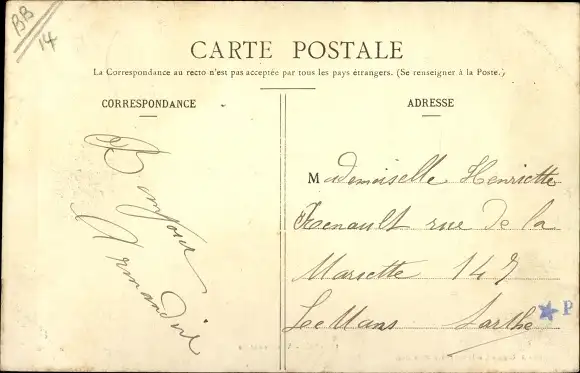 BB
14
CARTE POSTALE
La Correspondance au recto n'est pas acceptée par tous les pays étrangers. (Se renseigner à la Poste.)
CORRESPONDANCE
ADRESSE
Bonjour
Armandine
Mademoiselle Henriette
Renault rue de la
Mariette 147
Le Mans Sarthe
P